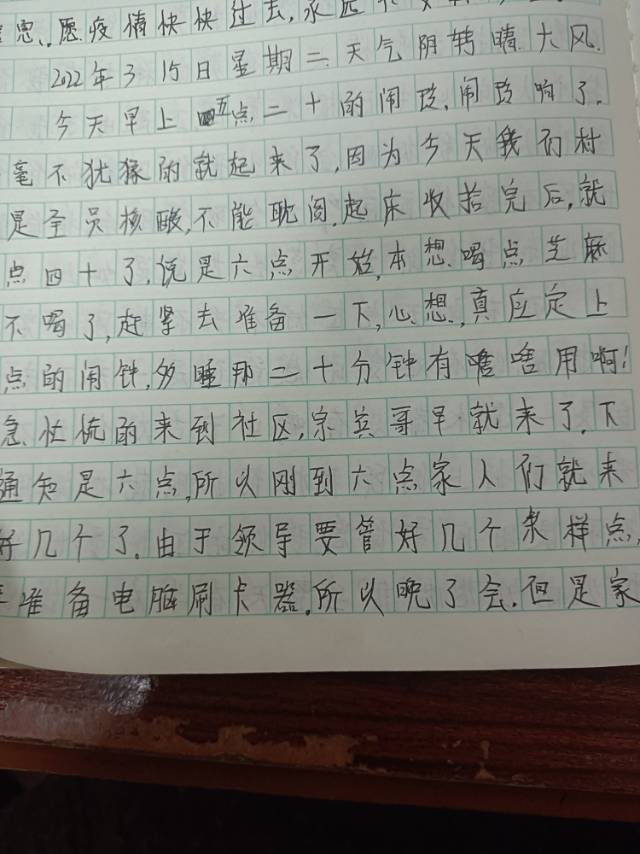 思.愿疫情快快过去,永远不
2022年3月15日星期二.天气阴转晴.大风.
今天早上五点二十的闹铃,闹铃响了.
毫不犹豫的就起来了,因为今天我们村
是全员核酸,不能耽阁.起床收拾完后,就
点四十了,说是六点开始,本想喝点芝麻
不喝了,赶紧去准备一下,心想,真应定上
点的闹钟,多睡那二十分钟有啥啥用啊!
急忙慌的来到社区,宗英哥早就来了.下
通知是六点,所以刚到六点家人们就来
好几个了.由于领导要管好几个采样点,
准备电脑刷卡器.所以晚了会.但是家